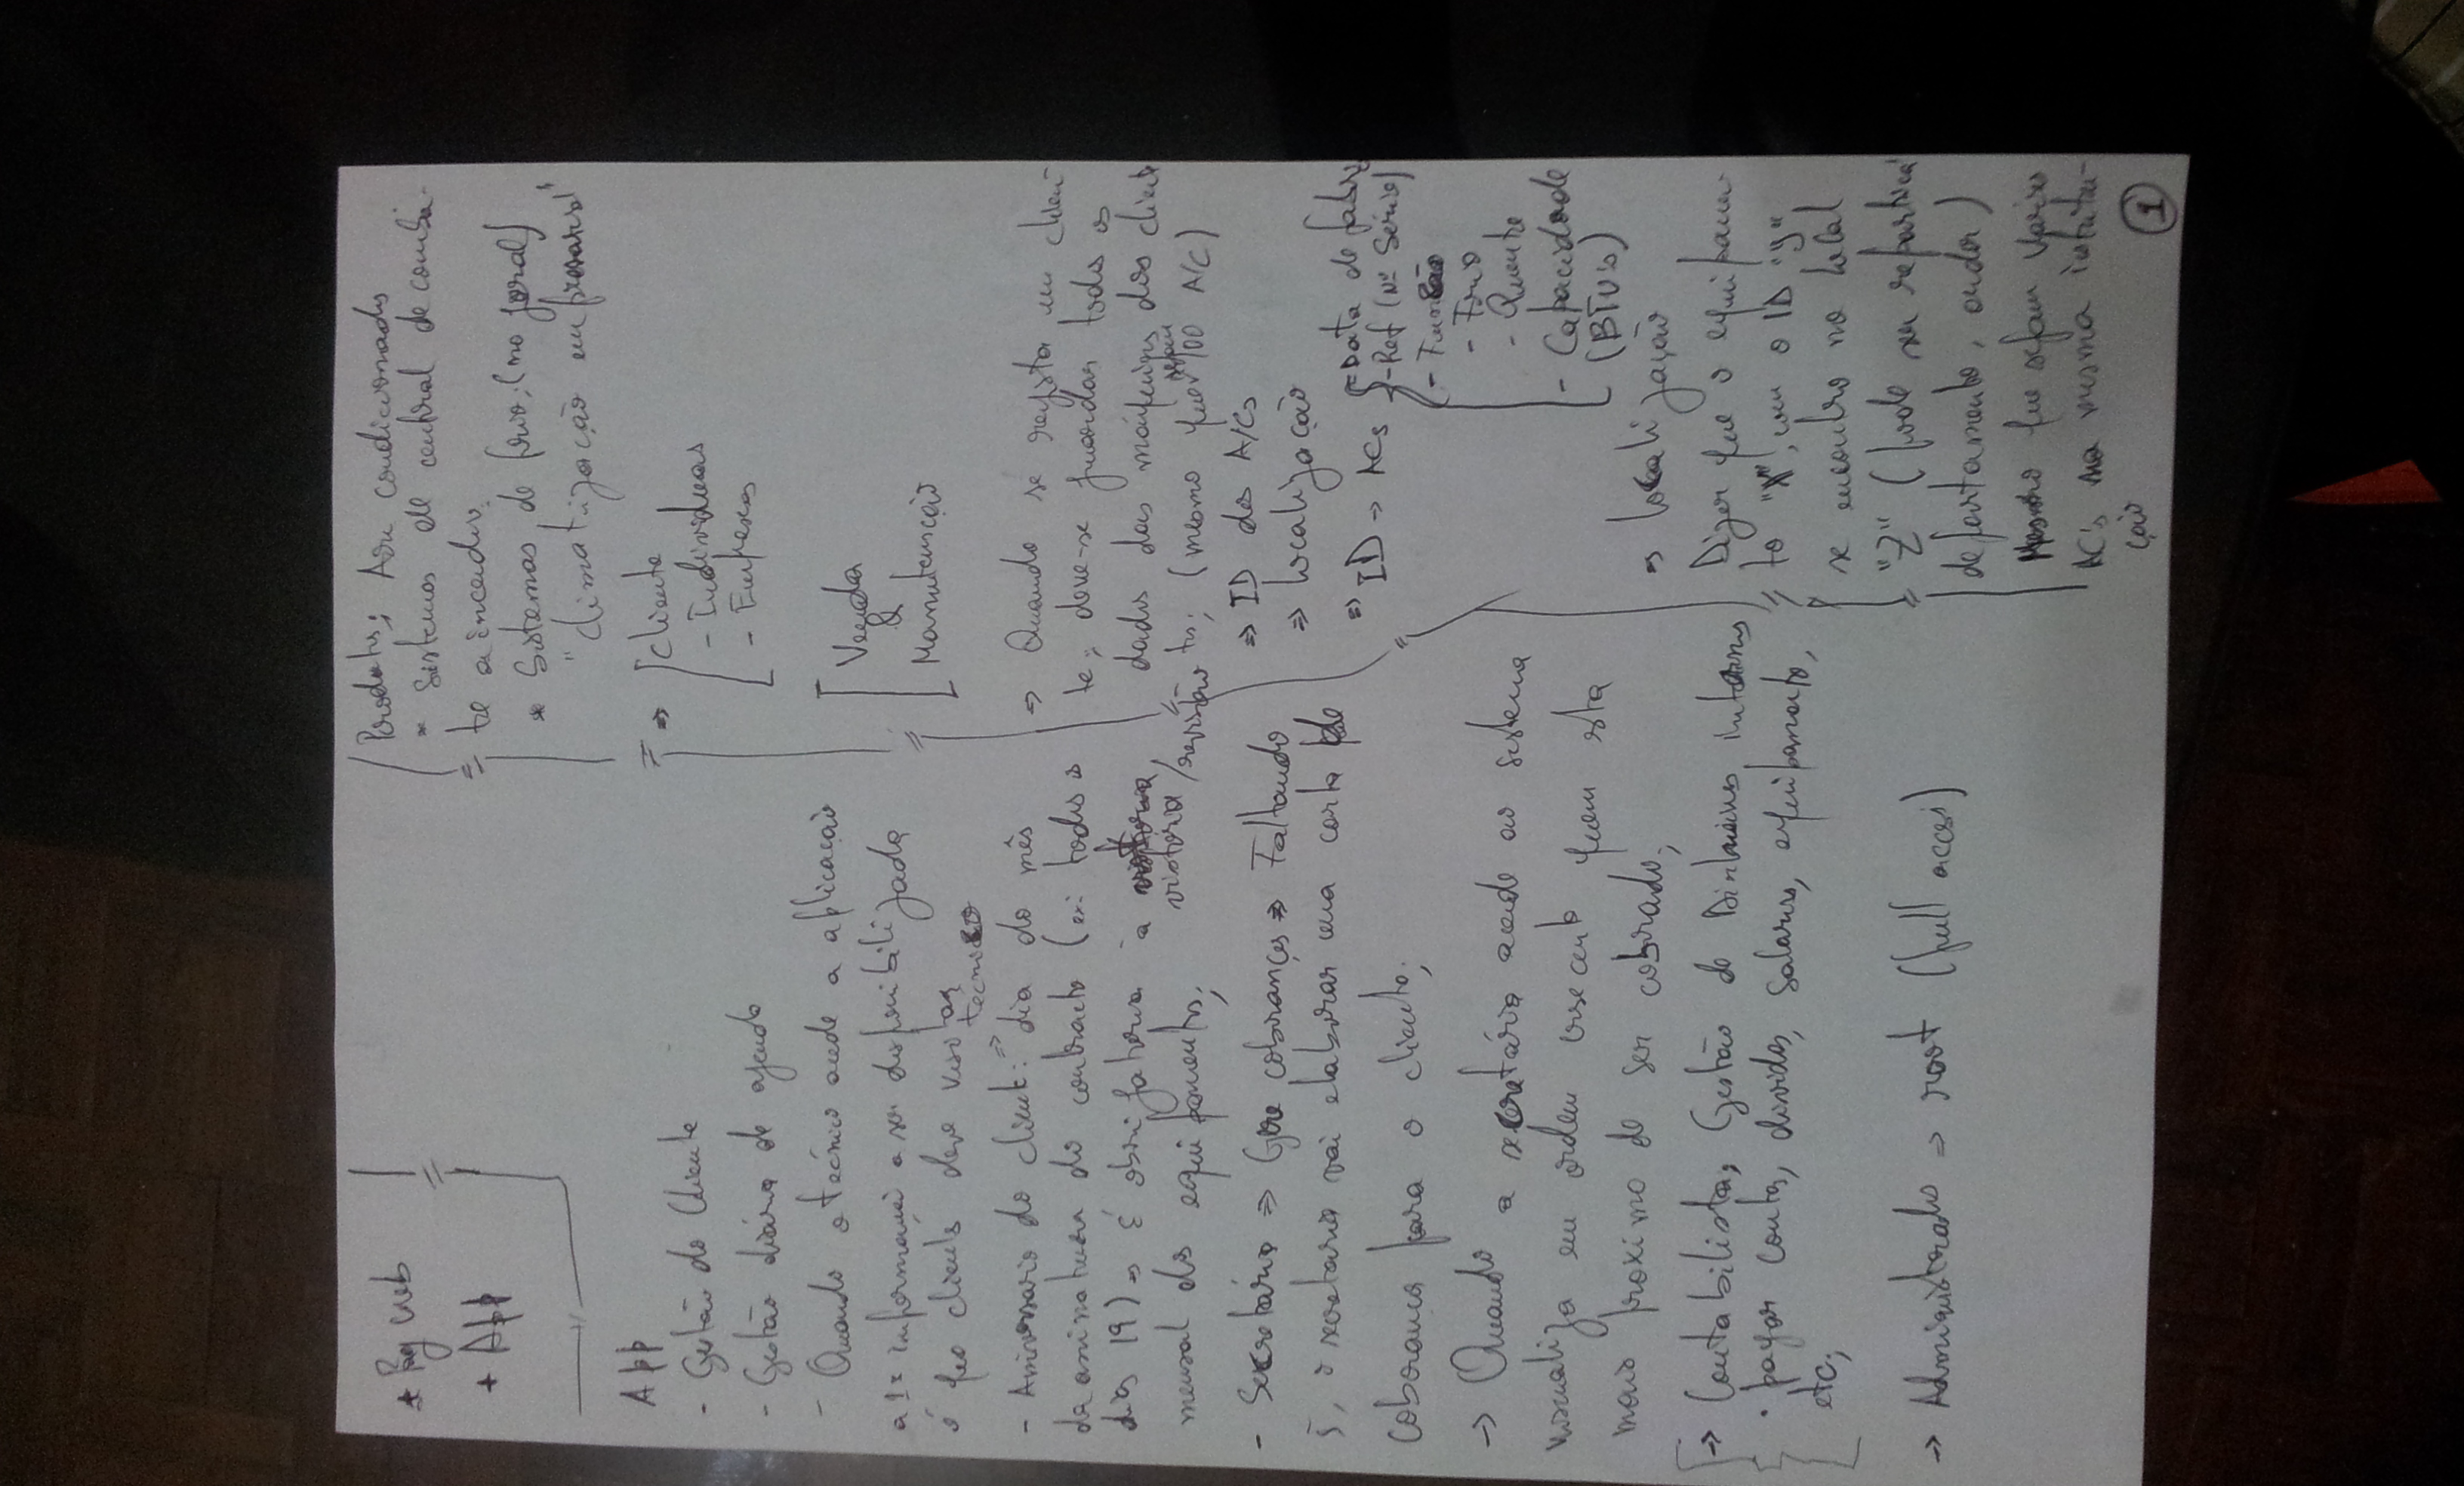 * Pag web
+ App
App
- Gestão do Cliente
- Gestão diária de agenda
- Quando o técnico acede a aplicação
a 1ª informação a ser disponibilizada
é que cliente deve visitar
técnico
- Aniversario do cliente: => dia do mês
da assinatura do contracto (ex: todos os
dias 19) => É obrigatoria à
vistoria/revisão
mensal dos equipamentos;
- Secretária => Gere cobranças => Faltando
5, a secretaria vai elaborar uma carta de
cobrança para o cliente;
-> Quando a secretária acede ao sistema
visualiza em ordem crescente quem esta
mais proximo de ser cobrado;
-> Contabilista, Gestão de Dinheiros internos
• pagar contas, dividas, salarios, equipamento,
etc;
-> Administrador => root (full acces)
Produtos; Ar condicionados
* Sistemas de central de comba-
te a incendios;
* Sistemas de frio; (no geral)
"climatização empresarial"
=> Cliente
- Individuais
- Empresas
Vendas
&
Manutenção
=> Quando se regista um clien-
te; deve-se guardas todos os
dados das máquinas dos clien
tes; (mesmo que sejam 100 A/C)
=> ID dos A/Cs
=> Localização
=> ID -> ACs
- Data de fabrico
- Ref (Nº Série)
- Função
- Frio
- Quente
- Capacidade
(BTU's)
=> Localização
Dizer que o equipamen-
to "X", com o ID "y"
se encontra no local
"Z" (pode ser repartição
departamento, andar)
Mesmo que sejam varios
AC's na mesma institui-
ção
1